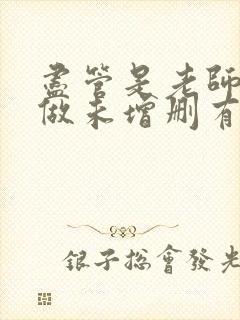 盡管是老師
做未增删有
銀子總會發光